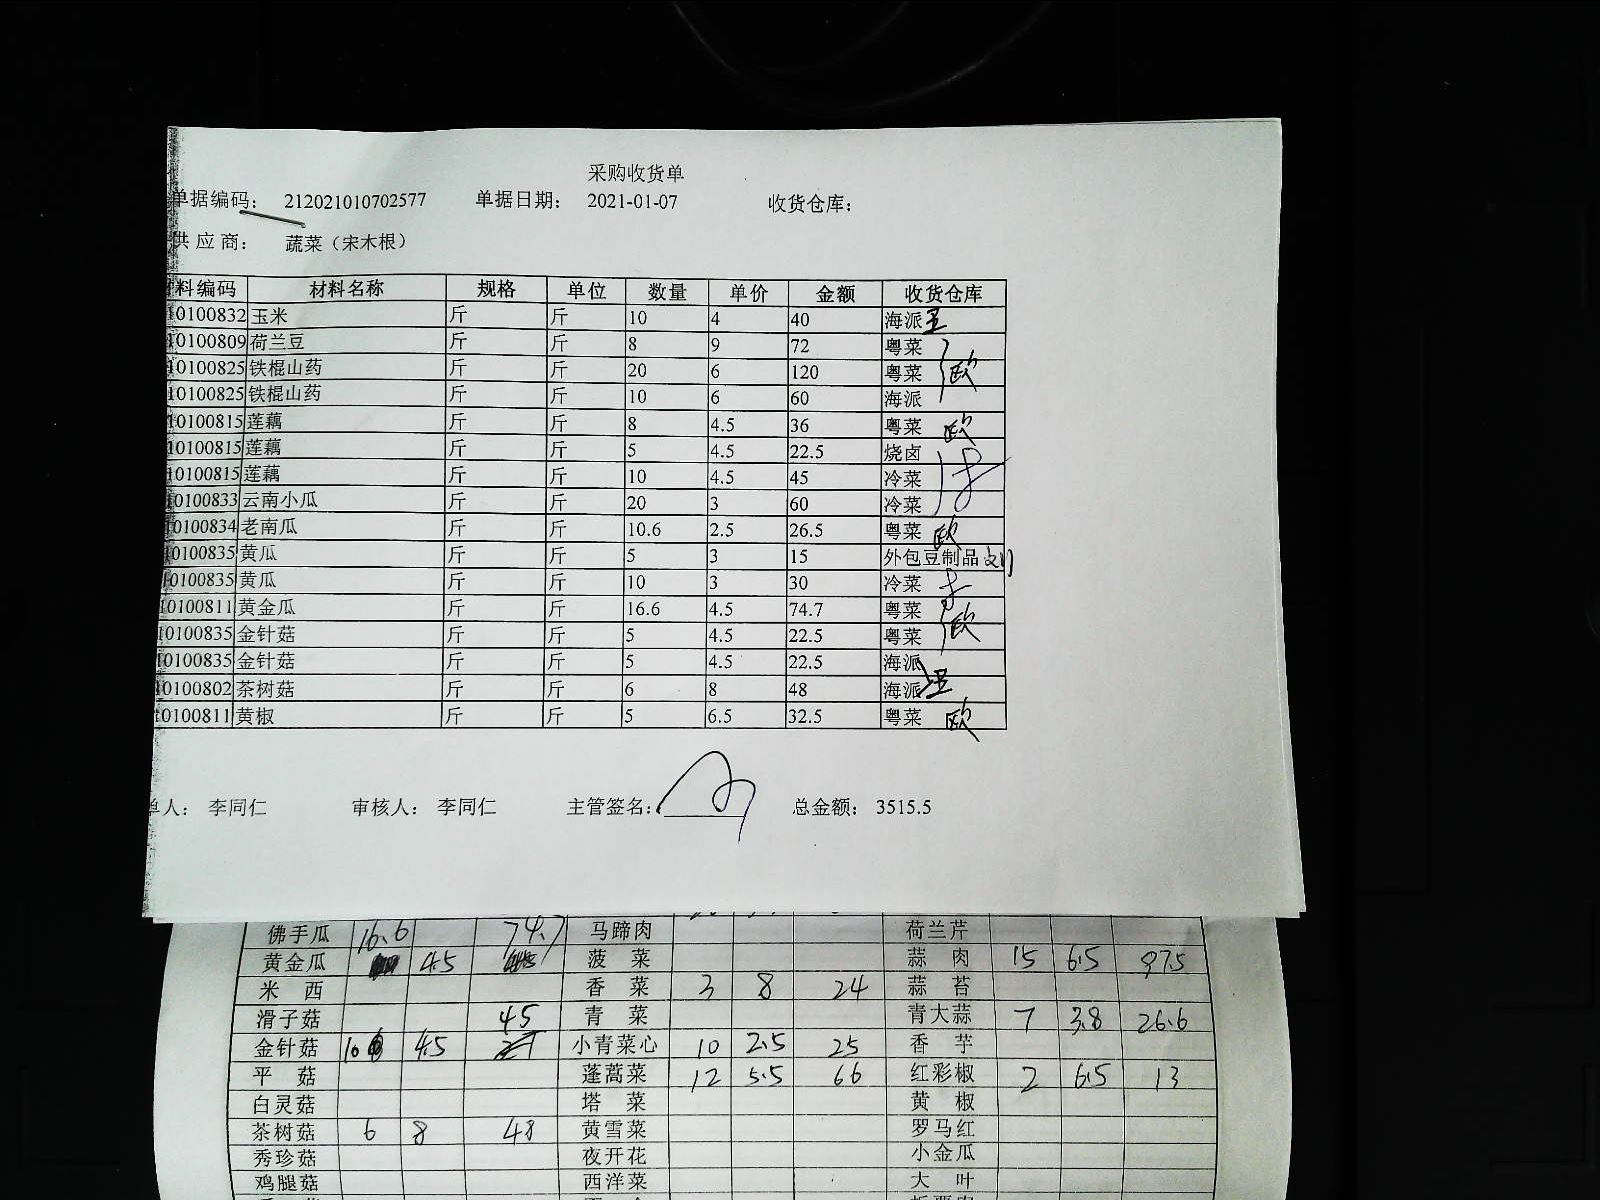 采购收货单
单据编码： 212021010702577 单据日期： 2021-01-07 收货仓库：
供应商： 蔬菜（宋木根）
料编码 材料名称 规格 单位 数量 单价 金额 收货仓库
10100832 玉米 斤 斤 10 4 40 海派
10100809 荷兰豆 斤 斤 8 9 72 粤菜
10100825 铁棍山药 斤 斤 20 6 120 粤菜 欧
10100825 铁棍山药 斤 斤 10 6 60 海派
10100815 莲藕 斤 斤 8 4.5 36 粤菜 欧
10100815 莲藕 斤 斤 5 4.5 22.5 烧卤
10100815 莲藕 斤 斤 10 4.5 45 冷菜
10100833 云南小瓜 斤 斤 20 3 60 冷菜
10100834 老南瓜 斤 斤 10.6 2.5 26.5 粤菜 欧
10100835 黄瓜 斤 斤 5 3 15 外包豆制品
10100835 黄瓜 斤 斤 10 3 30 冷菜
10100811 黄金瓜 斤 斤 16.6 4.5 74.7 粤菜 欧
10100835 金针菇 斤 斤 5 4.5 22.5 粤菜
10100835 金针菇 斤 斤 5 4.5 22.5 海派
10100802 茶树菇 斤 斤 6 8 48 海派
10100811 黄椒 斤 斤 5 6.5 32.5 粤菜 欧
单人： 李同仁 审核人： 李同仁 主管签名： 总金额： 3515.5
佛手瓜 16.6 74.7 马蹄肉 荷兰芹
黄金瓜 4.5 菠菜 蒜肉 15 6.5 97.5
米西 香菜 3 8 24 蒜苔
滑子菇 45 青菜 青大蒜 7 3.8 26.6
金针菇 10 4.5 小青菜心 10 2.5 25 香芋
平菇 蓬蒿菜 12 5.5 66 红彩椒 2 6.5 13
白灵菇 塔菜 黄椒
茶树菇 6 8 48 黄雪菜 罗马红
秀珍菇 夜开花 小金瓜
鸡腿菇 西洋菜 大叶